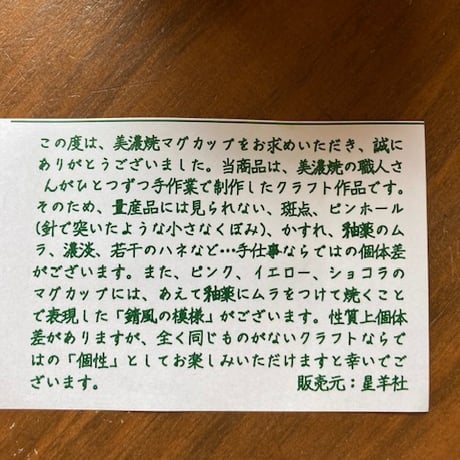 この度は、美濃焼マグカップをお求めいただき、誠に
ありがとうございました。当商品は、美濃焼の職人さ
んがひとつずつ手作業で制作したクラフト作品です。
そのため、量産品には見られない、斑点、ピンホール
(針で突いたような小さなくぼみ)、かすれ、釉薬のム
ラ、濃淡、若干のハネなど…手仕事ならではの個体差
がございます。また、ピンク、イエロー、ショコラの
マグカップには、あえて釉薬にムラをつけて焼くこと
で表現した「錆風の模様」がございます。性質上個体
差がありますが、全く同じものがないクラフトならで
はの「個性」としてお楽しみいただけますと幸いでご
ざいます。 販売元：星羊社